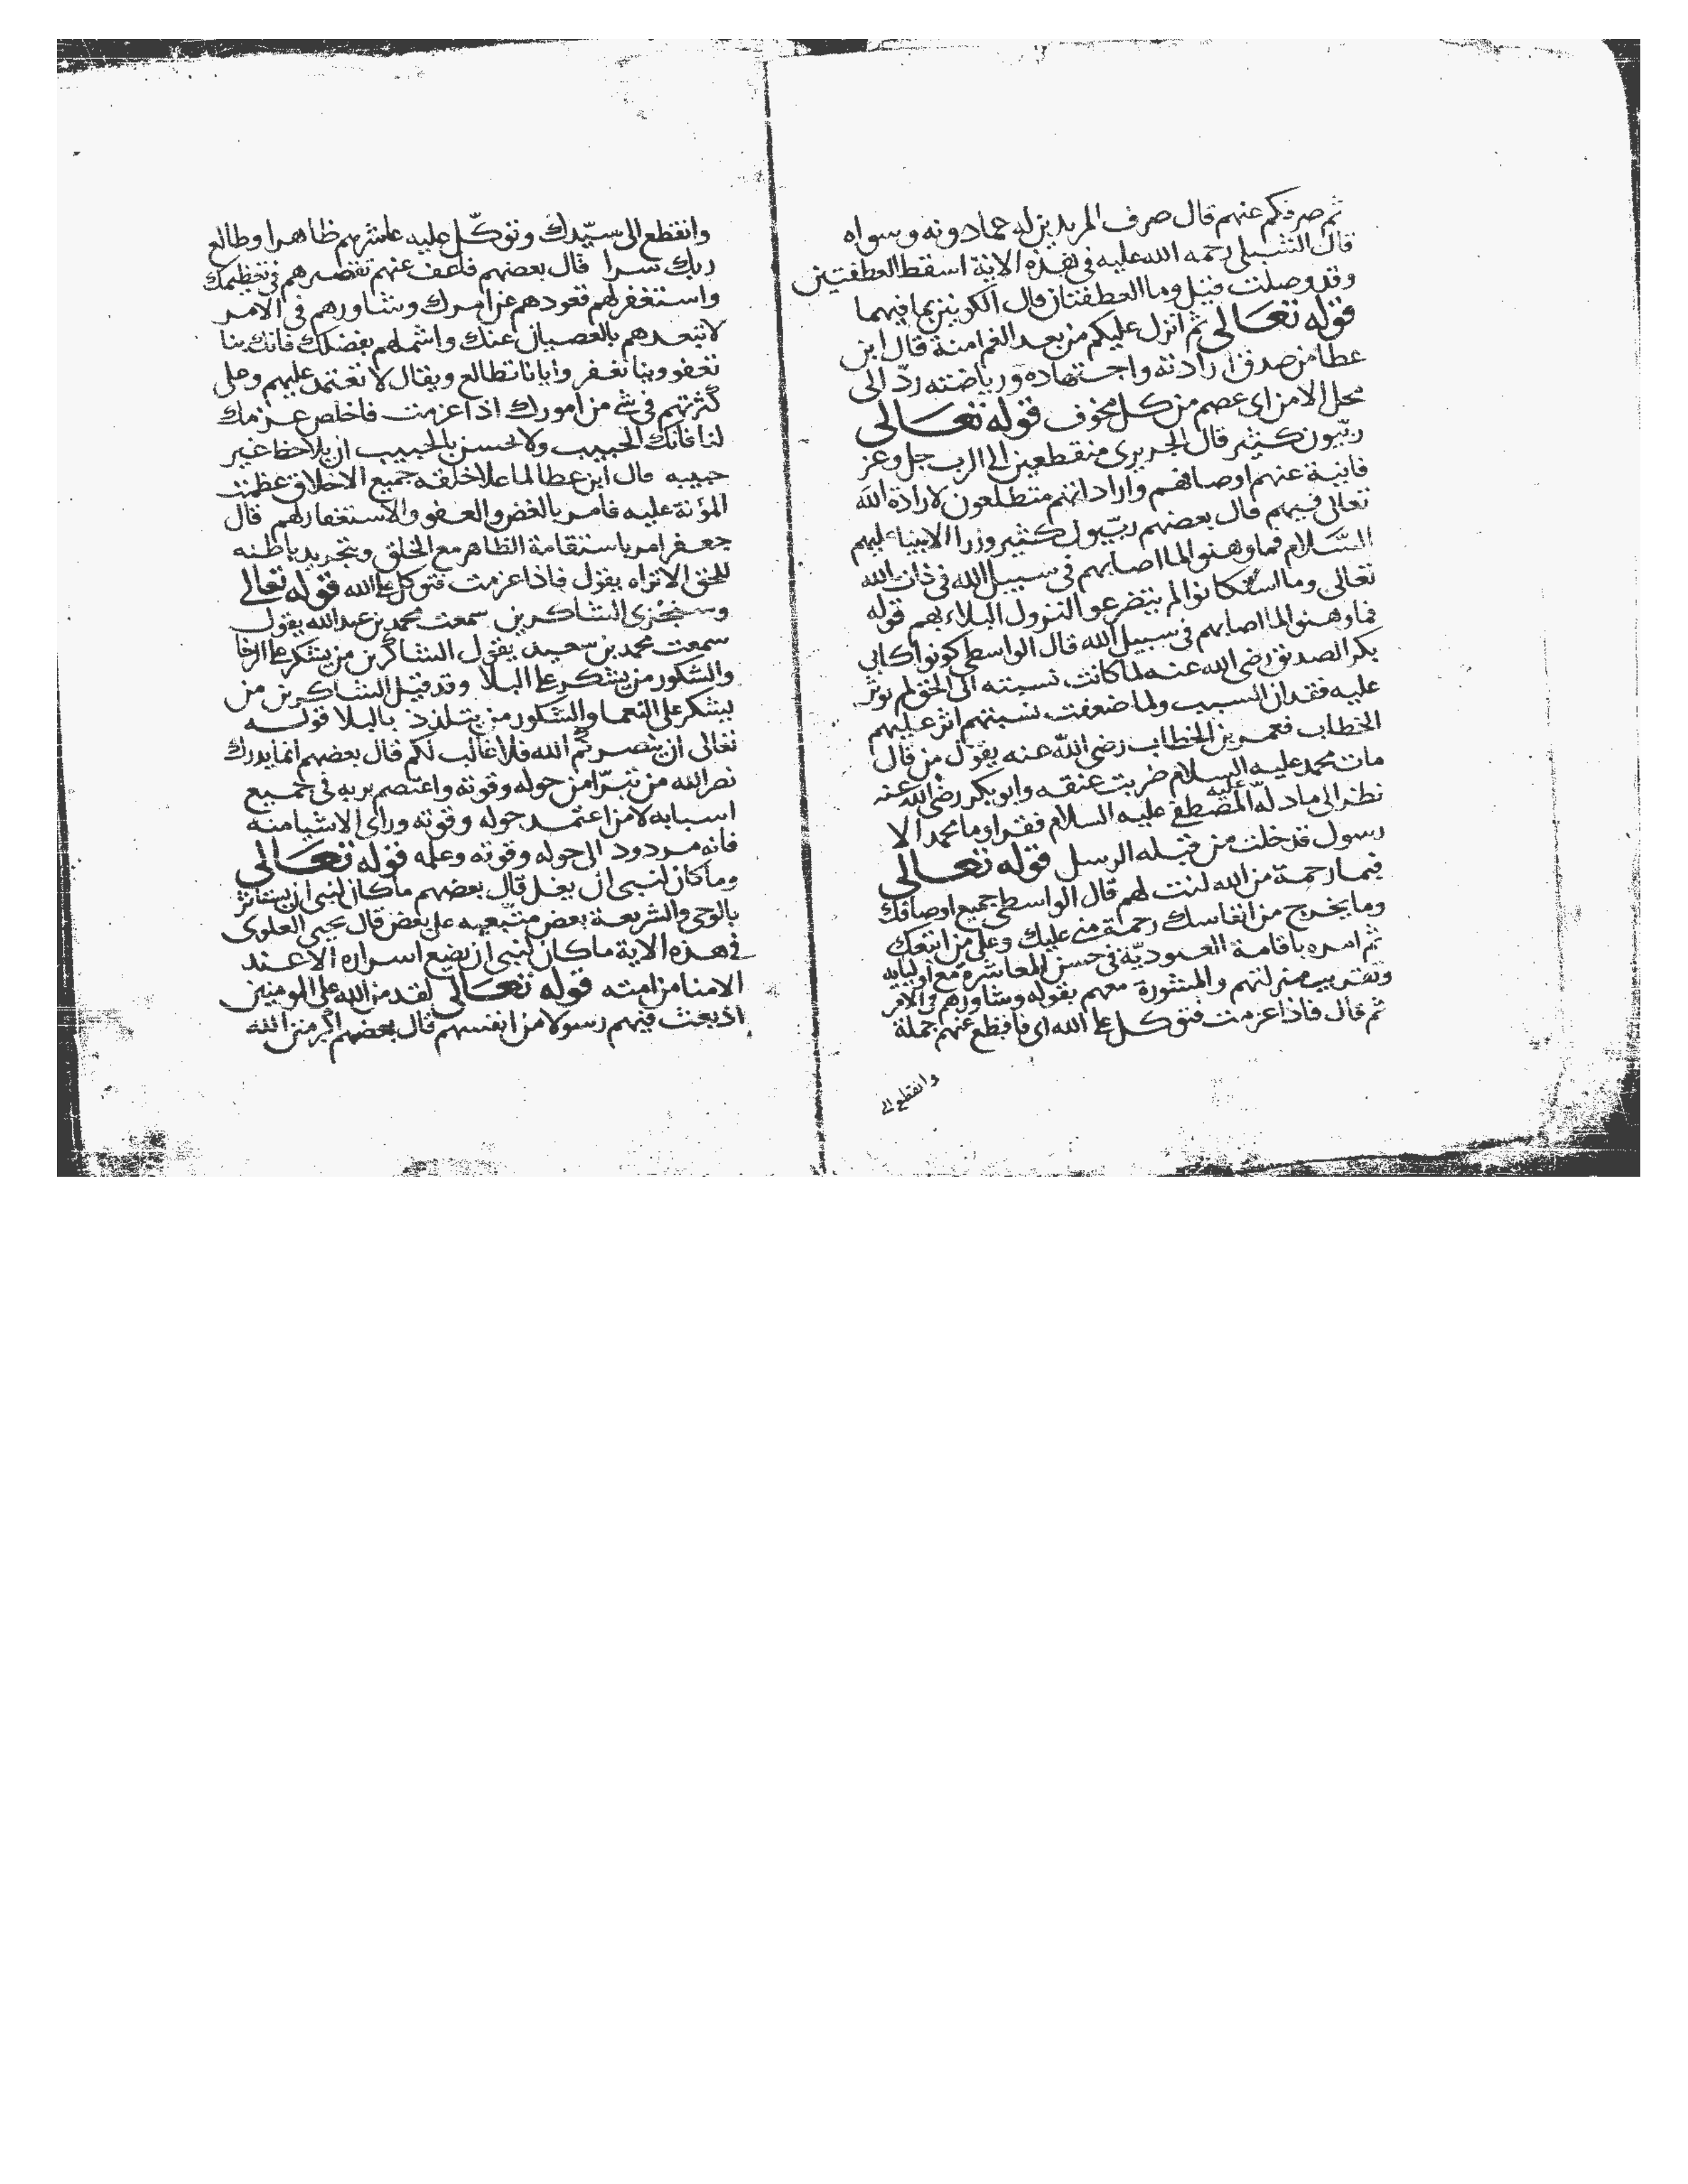 ثم صرفكم عنهم قال صرف المريدين له عما دونه وسواه
قال الشبلي رحمه الله عليه في هذه الاية اسقط العطفتين
وقد وصلت قيل وما العطفتان قال الكونين بما فيهما
قوله تعالى ثم انزل عليكم من بعد الغم امنة قال ابن
عطا من صدق ارادته واجتهاده ورياضته ردّ الى
محل الامن اى عصم من كل مخوف قوله تعالى
ربّيون كثير قال الجريرى منقطعين الى الرب جل وعز
فانية عنهم اوصافهم واراد انهم متطلعون لارادة الله
تعالى فيهم قال بعضهم ربّيون كثير وزرا الانبيا عليهم
السّلام فما وهنوا لما اصابهم في سبيل الله في ذات الله
تعالى وما استكانوا لم يتضرعوا لنزول البلاء بهم قوله
فما وهنوا لما اصابهم في سبيل الله قال الواسطي كونوا كابي
بكر الصديق رضى الله عنه لما كانت نسبته الى الحق لم يوثر
عليه فقدان السبب ولما ضعفت نسبتهم اثر عليهم
الخطاب فعمر بن الخطاب رضى الله عنه يقول من قال
مات محمد عليه السلام ضربت عنقه وابو بكر رضى الله عنه
نظر الى ما دله عليه المصطفى عليه السلام فقرا وما محمد الا
رسول قد خلت من قبله الرسل قوله تعالى
فبما رحمة من الله لنت لهم قال الواسطي جميع اوصافك
وما يخرج من انفاسك رحمة منى عليك وعلى من اتبعك
ثم امره باقامة العبوديّة في حسن المعاشرة مع اوليايه
وتقريب منزلتهم والمشورة معهم بقوله وشاورهم في الامر
ثم قال فاذا عزمت فتوكل على الله اى فاقطع عنهم جملة
وانقطع الى
وانقطع الى سيّدك وتوكّل عليه عاشرهم ظاهرا وطالع
ربك سرا قال بعضهم فاعف عنهم تقصيرهم في تعظيمك
واستغفر لهم قعودهم عن امرك وشاورهم في الامر
لا تبعدهم بالعصيان عنك واشملهم بفضلك فانك بنا
تعفو وبنا تغفر وايانا تطالع ويقال لا تعتمد عليهم وعلى
كثرتهم في شئ من امورك اذا عزمت فاخلص عزمك
لنا فانك الحبيب ولا يحسن بالحبيب ان يلاحظ غير
حبيبه قال ابن عطا لما علا خلقه جميع الاخلاق عظمت
المؤنة عليه فامر بالغض والعفو والاستغفار لهم قال
جعفر امر باستقامة الظاهر مع الخلق وبتجريد باطنه
للحق الا تراه يقول فاذا عزمت فتوكل على الله قوله تعالى
وسنجزى الشاكرين سمعت محمد بن عبد الله يقول
سمعت محمد بن سعيد يقول الشاكرين من يشكر على الرخا
والشكور من يشكر على البلا وقد قيل الشاكرين من
يشكر على النعما والشكور من يتلذذ بالبلا قوله
تعالى ان ينصركم الله فلا غالب لكم قال بعضهم انما يدرك
نصر الله من تبرّا من حوله وقوته واعتصم بربه في جميع
اسبابه لا من اعتمد حوله وقوته وراى الاشيا منه
فانه مردود الى حوله وقوته وعلمه قوله تعالى
وما كان لنبى ان يغل قال بعضهم ما كان لنبى ان يستاثر
بالوحى والشريعة بعض متّبعيه على بعض قال يحيى العلوى
في هذه الاية ما كان لنبى ان يضع اسراره الا عند
الامنا من امته قوله تعالى لقد من الله على المومنين
اذ بعث فيهم رسولا من انفسهم قال بعضهم اكبر منن الله